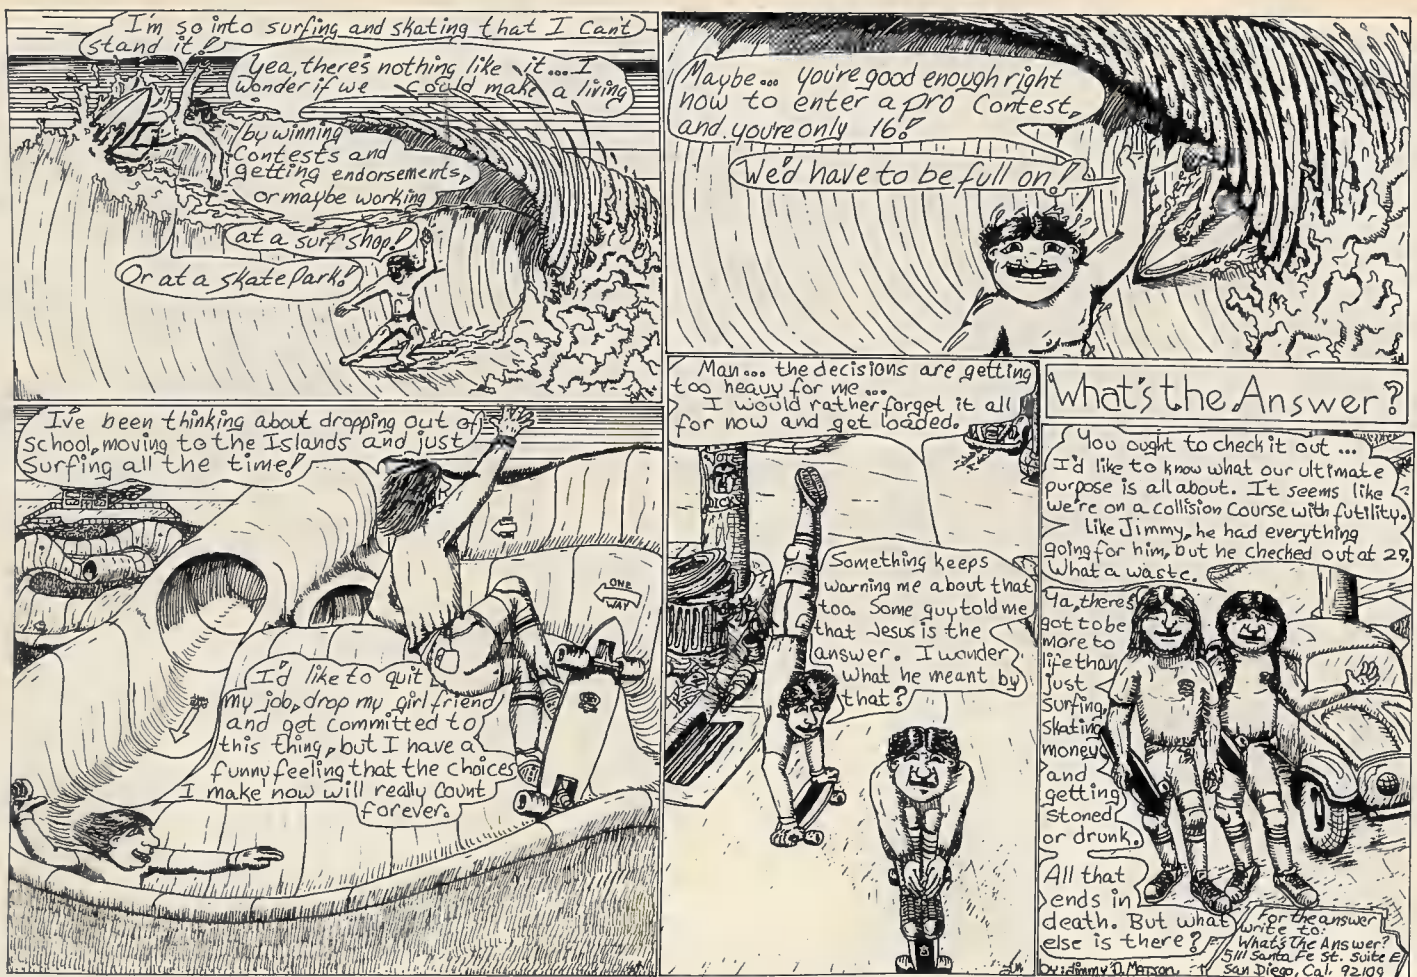 I'm so into surfing and skating that I can't
stand it!
Yea, there's nothing like it... I
wonder if we could make a living
by winning
contests and
getting endorsements,
or maybe working
at a surf shop!
Or at a skate Park!
Maybe... you're good enough right
now to enter a pro contest,
and you're only 16!
We'd have to be full on!
I've been thinking about dropping out of
school, moving to the Islands and just
Surfing all the time!
ONE
WAY
I'd like to quit
my job, drop my girlfriend
and get committed to
this thing, but I have a
funny feeling that the choices
I make now will really count
forever.
Man... the decisions are getting
too heavy for me...
I would rather forget it all
for now and get loaded.
Something keeps
warning me about that
too. Some guy told me
that Jesus is the
answer. I wonder
what he meant by
that?
What's the Answer?
You ought to check it out...
I'd like to know what our ultimate
purpose is all about. It seems like
we're on a collision course with futility.
Like Jimmy, he had everything
going for him, but he checked out at 29.
What a waste.
Ya, there's
got to be
more to
life than
just
surfing,
skating
money
and
getting
stoned
or drunk.
All that
ends in
death. But what
else is there?
by: Jimmy D. Matson
For the answer
write to:
What's The Answer?
5111 Santa Fe St. Suite E
San Diego, Ca. 92109